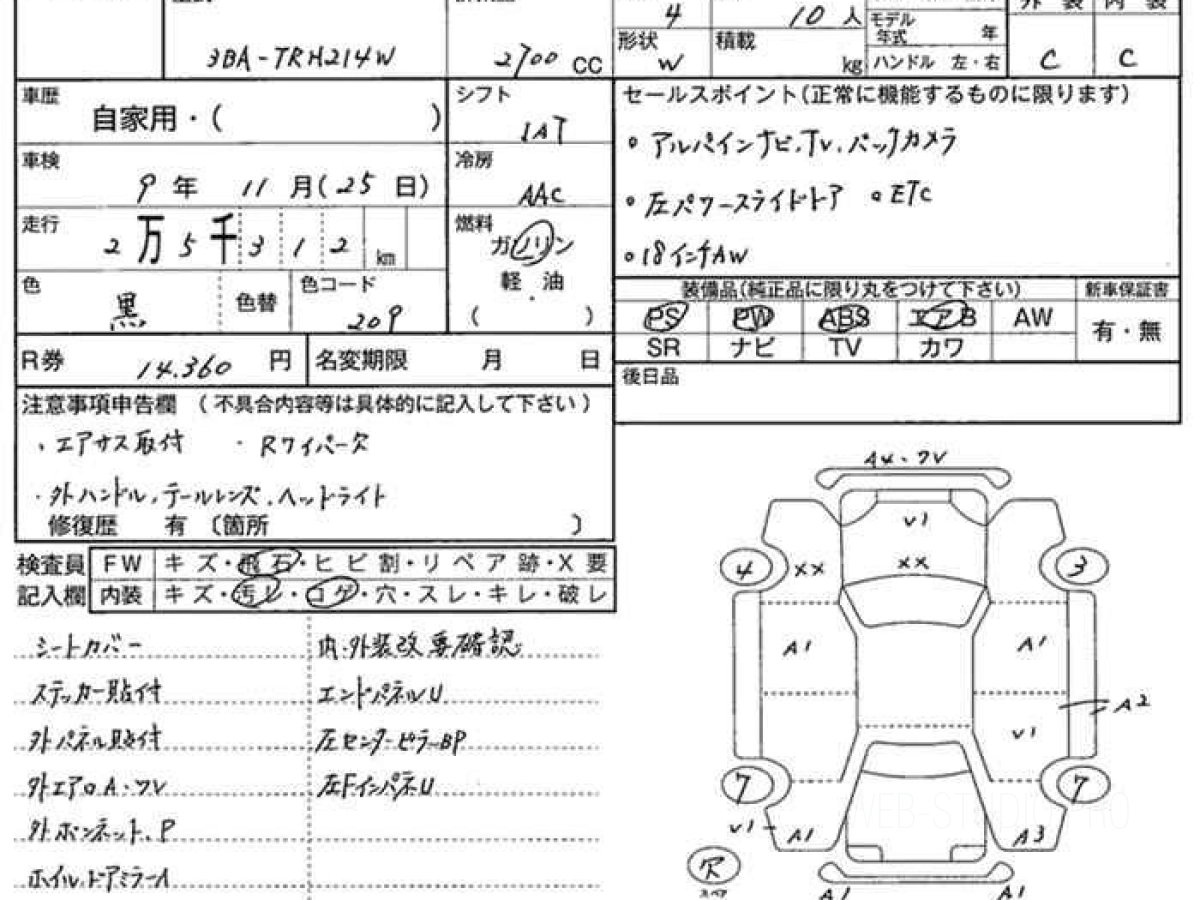 4 10 人 モデル年式 年 外装 内装
3BA-TRH214W 2700 CC 形状 W 積載 kg ハンドル 左・右 C C
車歴 自家用・( )
シフト 1AT
セールスポイント(正常に機能するものに限ります)
・アルパインナビ,TV,バックカメラ
車検 9年 11月(25日)
冷房 AAC
・左パワースライドドア ・ETC
走行 2万5千312km
燃料 ガソリン
・18インチAW
軽油
( )
色 黒 色替 色コード 209
装備品(純正品に限り丸をつけて下さい) 新車保証書
PS PW ABS エアB AW 有・無
SR ナビ TV カワ
R券 14.360円 名変期限 月 日
後日品
注意事項申告欄 (不具合内容等は具体的に記入して下さい)
、エアサス取付 ・Rワイパー欠
・外ハンドル,テールレンズ,ヘッドライト
修復歴 有 〔箇所 〕
検査員記入欄
FW キズ・飛石・ヒビ割・リペア跡・X要
内装 キズ・汚レ・コゲ・穴・スレ・キレ・破レ
シートカバー 内・外装改 要確認
ステッカー貼付 エンドパネルU
外パネル貼付 左センターピラーBP
外エアロA・ワレ 左FインパネU
外ボンネット,P
ホイル,ドアミラーA
A4・ワレ
V1
4 XX XX 3
A1 A1
A2
V1
7 7
V1 A1 A3
欠
スペア
A1 A1
WEB-STUDIO PRO